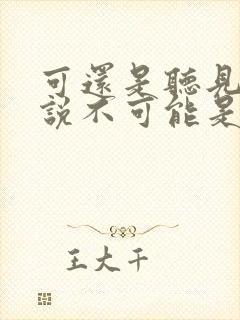 可還是聽見
說不可能是
王大千